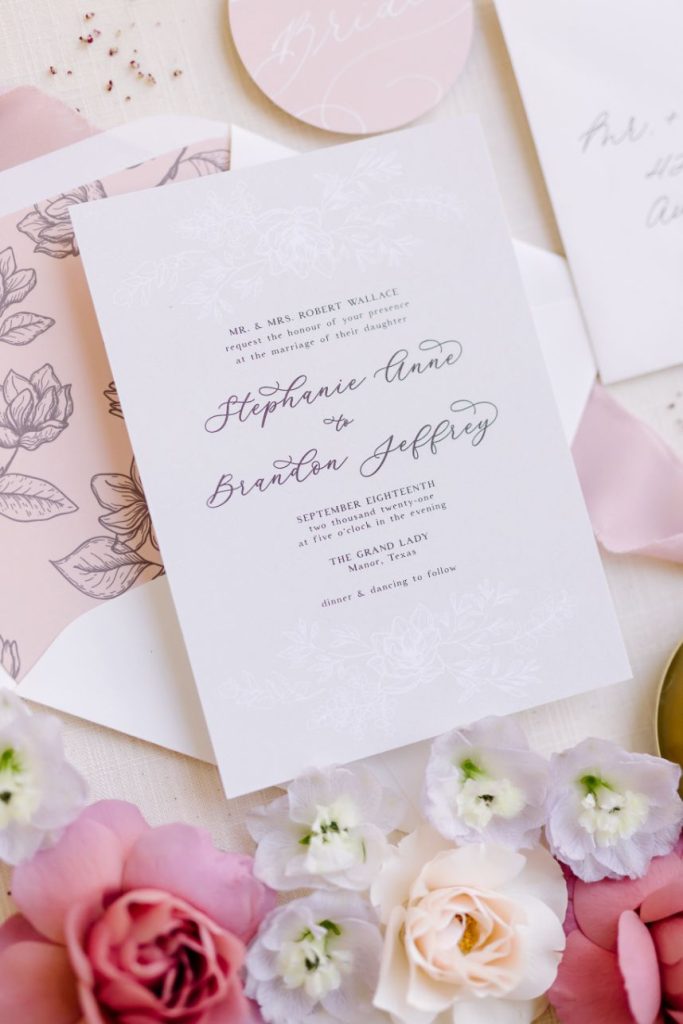 Bride
Mr. +
42
Au
MR. & MRS. ROBERT WALLACE
request the honour of your presence
at the marriage of their daughter
Stephanie Anne
to
Brandon Jeffrey
SEPTEMBER EIGHTEENTH
two thousand twenty-one
at five o'clock in the evening
THE GRAND LADY
Manor, Texas
dinner & dancing to follow